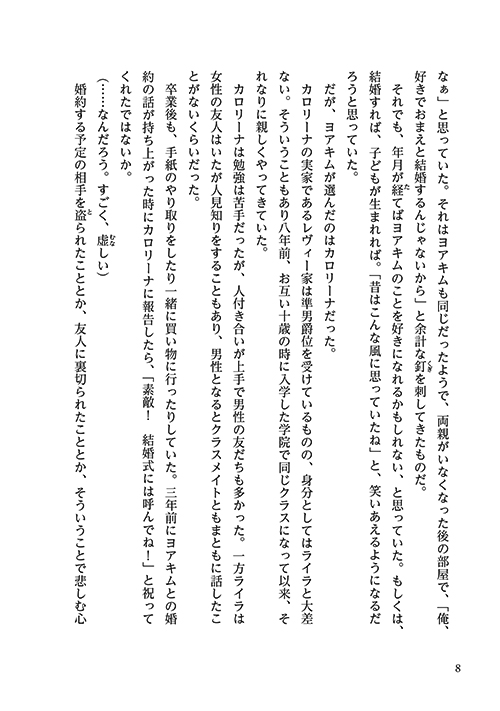 なぁ」と思っていた。それはヨアキムも同じだったようで、両親がいなくなった後の部屋で、「俺、
好きでおまえと結婚するんじゃないから」と余計な釘を刺してきたものだ。
それでも、年月が経てばヨアキムのことを好きになれるかもしれない、と思っていた。もしくは、
結婚すれば、子どもが生まれれば。「昔はこんな風に思っていたね」と、笑いあえるようになるだ
ろうと思っていた。
だが、ヨアキムが選んだのはカロリーナだった。
カロリーナの実家であるレヴィー家は準男爵位を受けているものの、身分としてはライラと大差
ない。そういうこともあり八年前、お互い十歳の時に入学した学院で同じクラスになって以来、そ
れなりに親しくやってきていた。
カロリーナは勉強は苦手だったが、人付き合いが上手で男性の友だちも多かった。一方ライラは
女性の友人はいたが人見知りをすることもあり、男性となるとクラスメイトともまともに話したこ
とがないくらいだった。
卒業後も、手紙のやり取りをしたり一緒に買い物に行ったりしていた。三年前にヨアキムとの婚
約の話が持ち上がった時にカロリーナに報告したら、「素敵！　結婚式には呼んでね！」と祝って
くれたではないか。
（……なんだろう。すごく、虚しい）
婚約する予定の相手を盗られたこととか、友人に裏切られたこととか、そういうことで悲しむ心
8